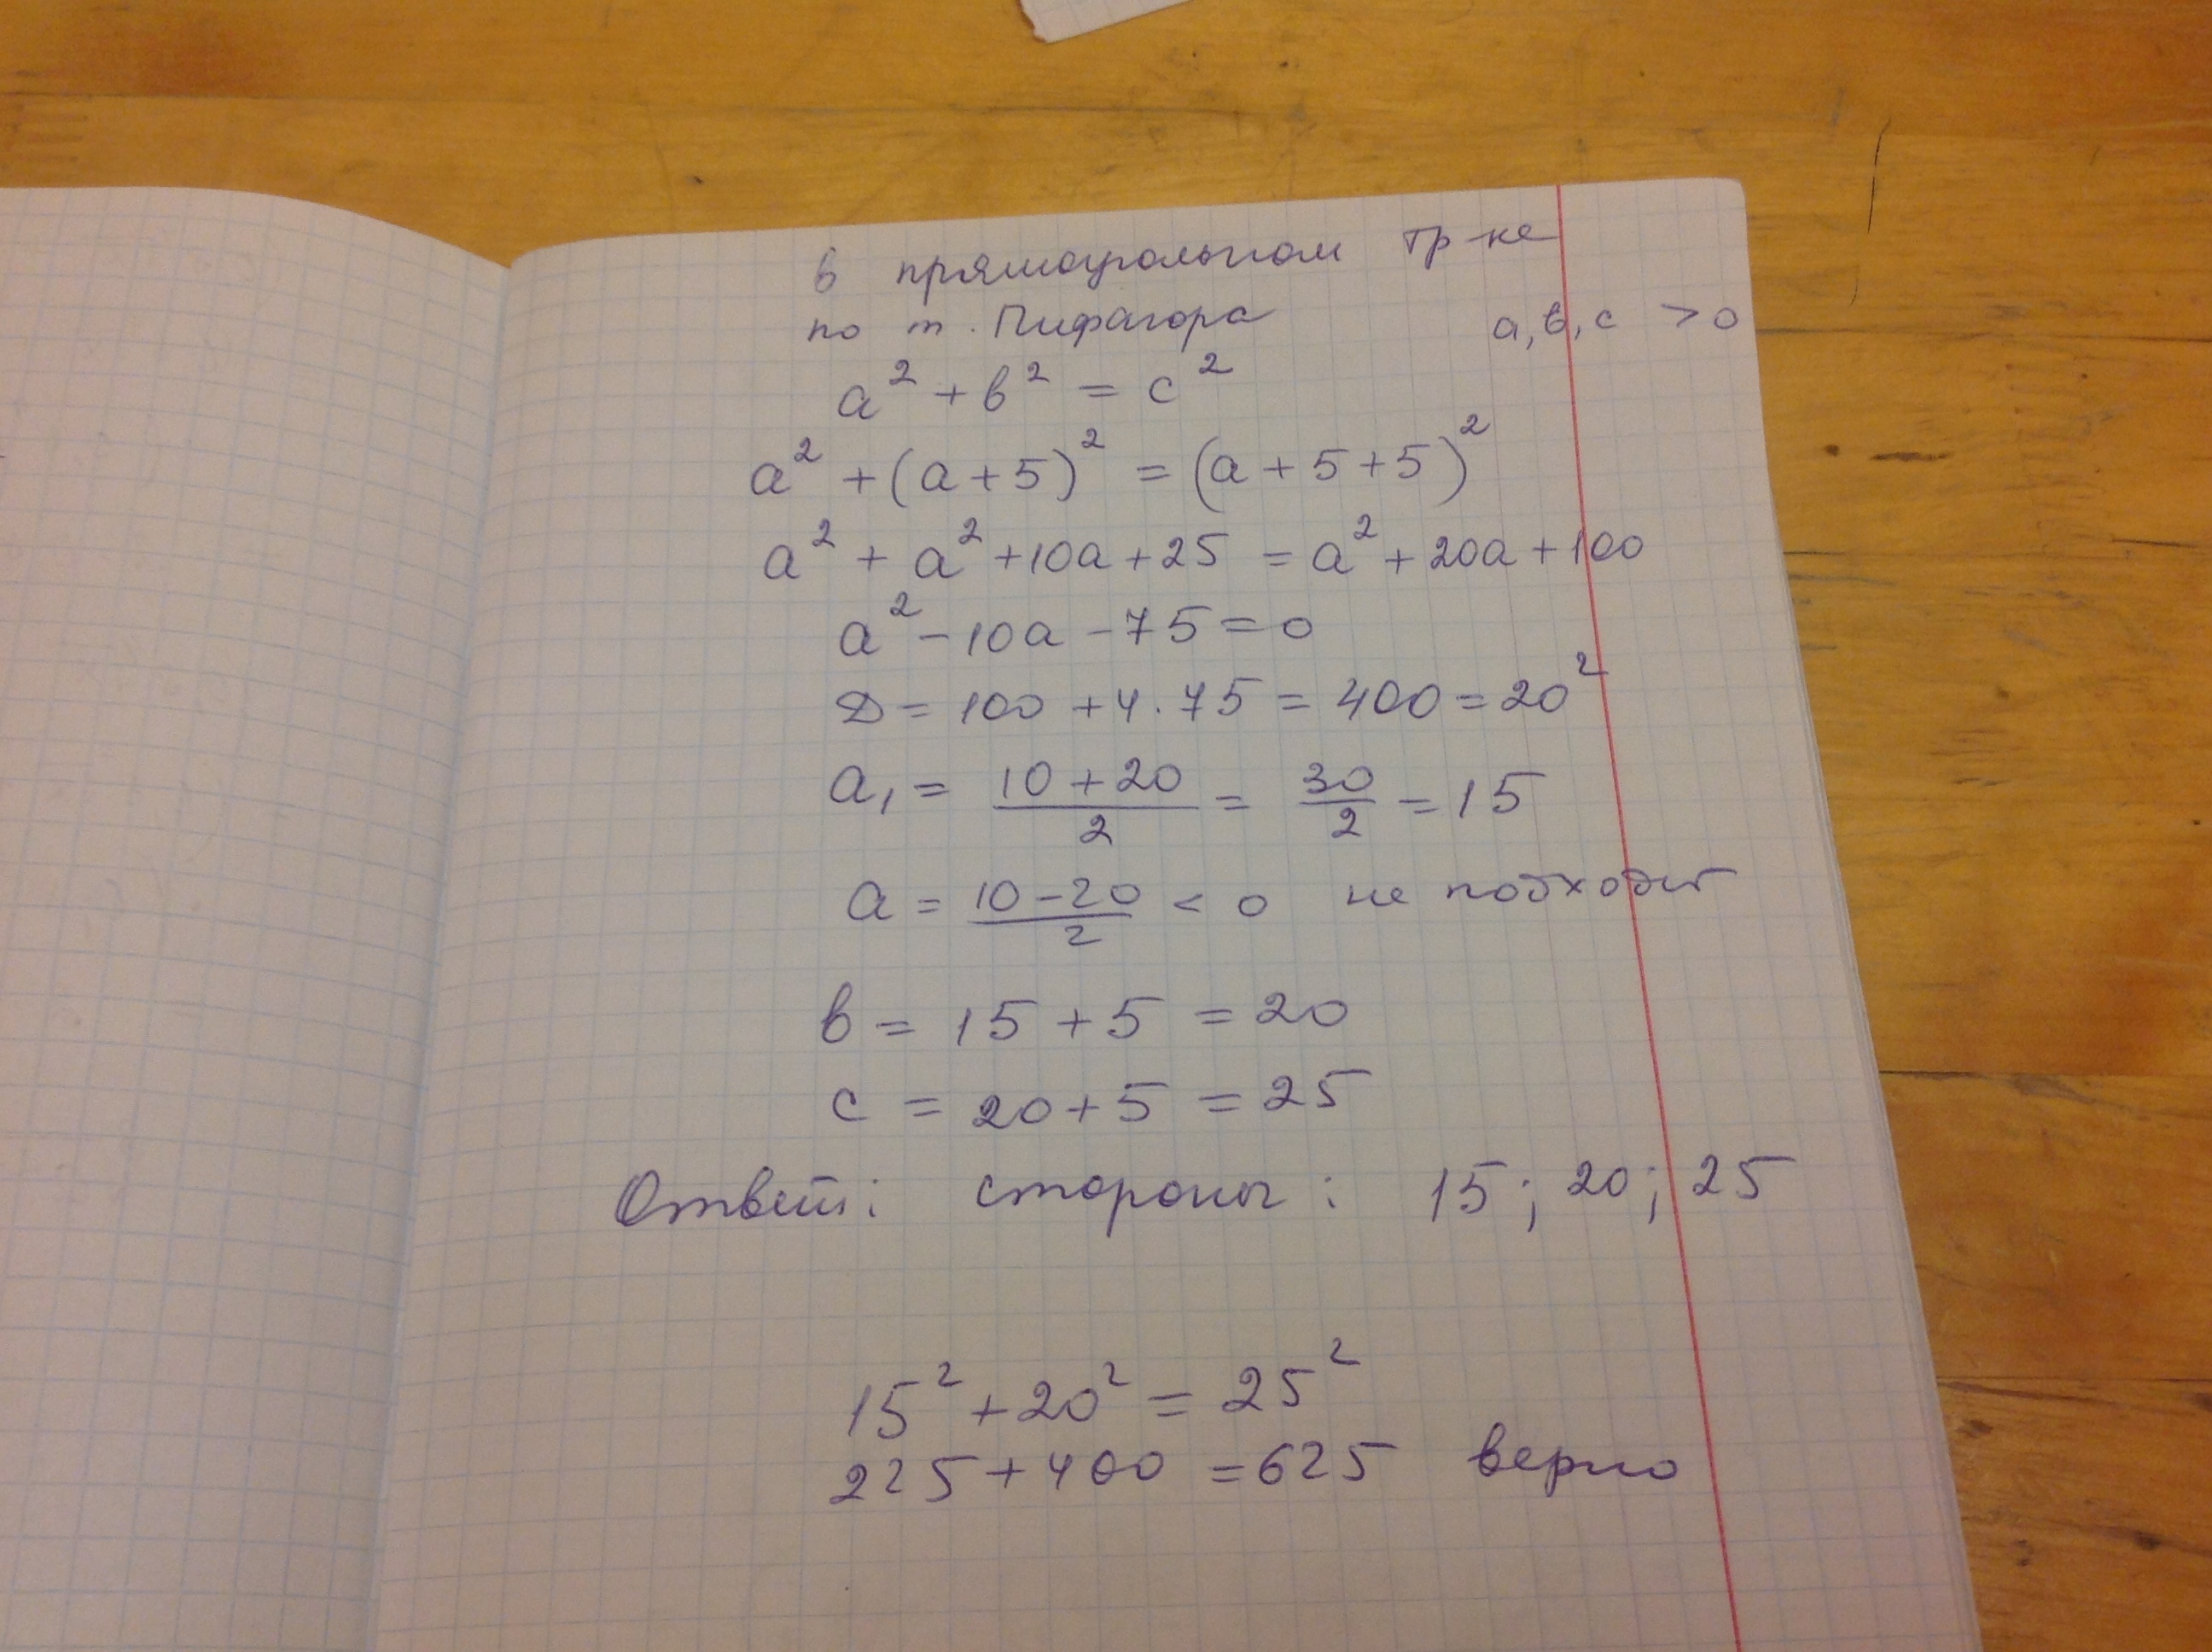 в прямоугольном тр-ке
по т. Пифагора a, в, с > 0
a² + в² = с²
a² + (a + 5)² = (a + 5 + 5)²
a² + a² + 10a + 25 = a² + 20a + 100
a² - 10a - 75 = 0
D = 100 + 4 · 75 = 400 = 20²
a₁ = (10 + 20)/2 = 30/2 = 15
a = (10 - 20)/2 < 0 не подходит
в = 15 + 5 = 20
с = 20 + 5 = 25
Ответ: стороны: 15; 20; 25
15² + 20² = 25²
225 + 400 = 625 верно